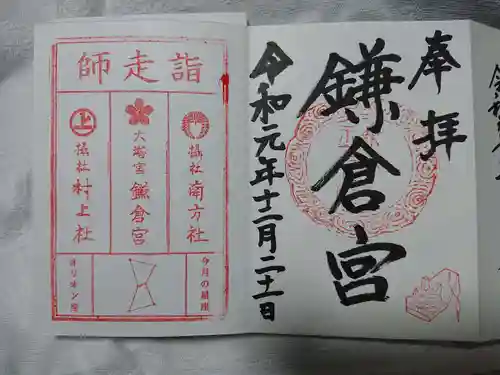 奉拝
鎌倉宮
令和元年十二月二十一日
師走詣
摂社 南方社
大塔宮 鎌倉宮
上
摂社 村上社
今月の星座
オリオン座